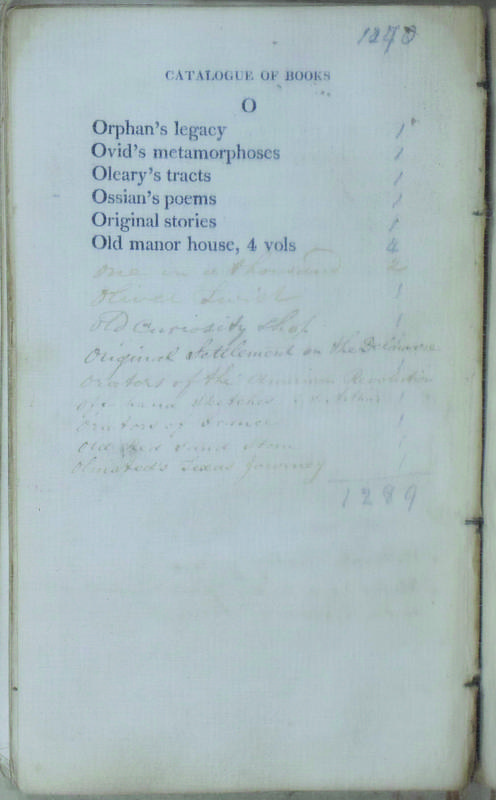 1270
CATALOGUE OF BOOKS
O
Orphan's legacy 1
Ovid's metamorphoses 1
Oleary's tracts 1
Ossian's poems 1
Original stories 1
Old manor house, 4 vols 4
One in a thousand 2
Oliver 1
Old Curiosity Shop 1
Original Settlement on the Delaware
Orators of the American Revolution
Off hand Sketches 1
Orators of France 1
Old Red Sand Stone 1
Olmsted's Texas Journey 1
1289